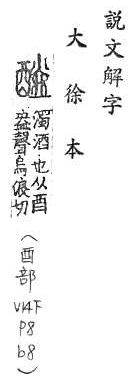 説文解字
大徐本
醠
濁酒也从酉
盎聲烏浪切
（酉部 V14下 P8 b8）